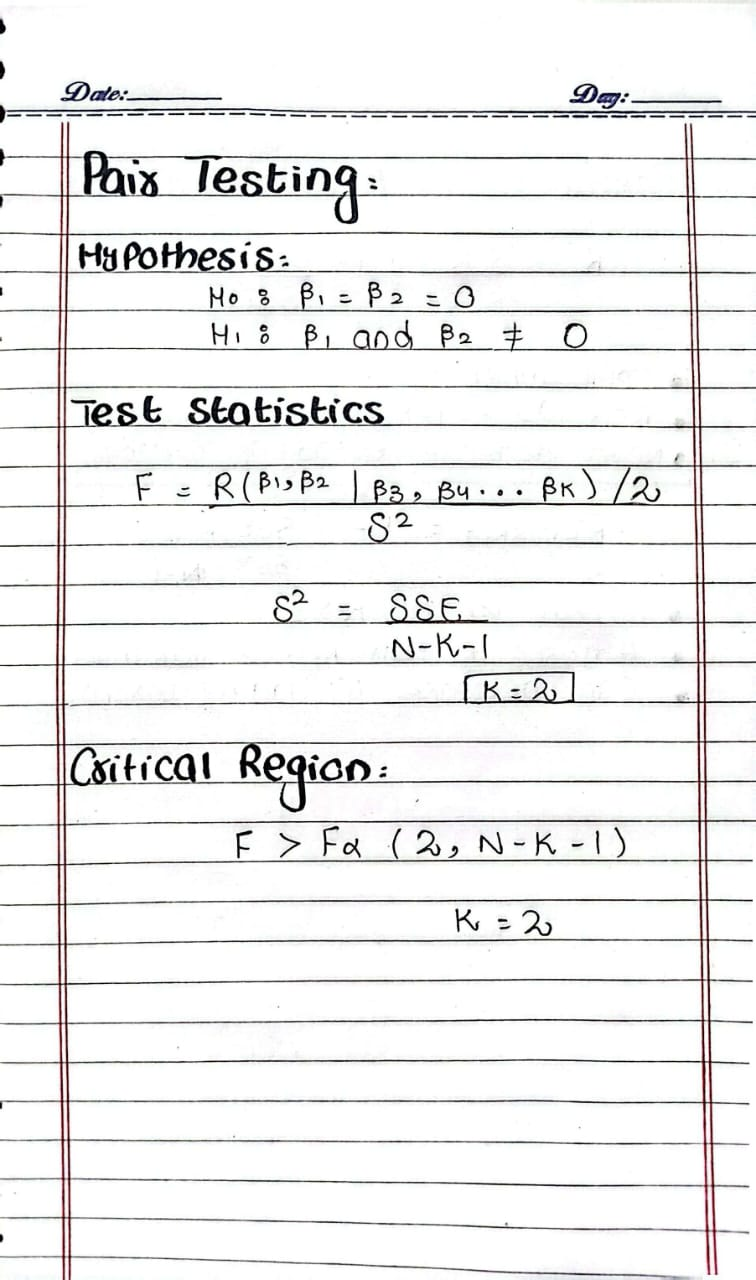 Date: Day:
Pair Testing:
Hypothesis:
H0 : β1 = β2 = 0
H1 : β1 and β2 ≠ 0
Test Statistics
F = R(β1, β2 | β3, β4... βK) /2
S2
S² = SSE
N-K-1
K = 2
Critical Region:
F > Fα (2, N-K-1)
K = 2